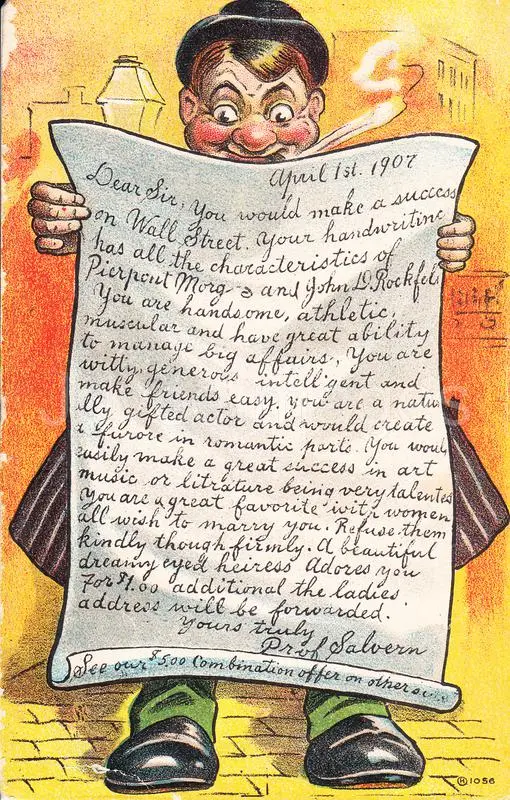 April 1st. 1907
Dear Sir, You would make a success
on Wall Street. Your handwriting
has all the characteristics of
Pierpont Morg-3 and John D. Rockfell
You are handsome, athletic,
muscular and have great ability
to manage big affairs, You are
witty, generous intelligent and
make friends easy. you are a natu
lly gifted actor and would create
a furore in romantic parts. You would
easily make a great success in art
music or litrature being very talented
You are a great favorite with women
all wish to marry you. Refuse them
kindly though firmly. A beautiful
dreamy eyed heiress Adores you
For $1.00 additional the ladies'
address will be forwarded.
Yours truly
Prof Salvern
See our $5.00 Combination offer on other si...
H 1056